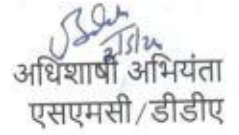 अधिशाषी अभियंता
एसएमसी/डीडीए